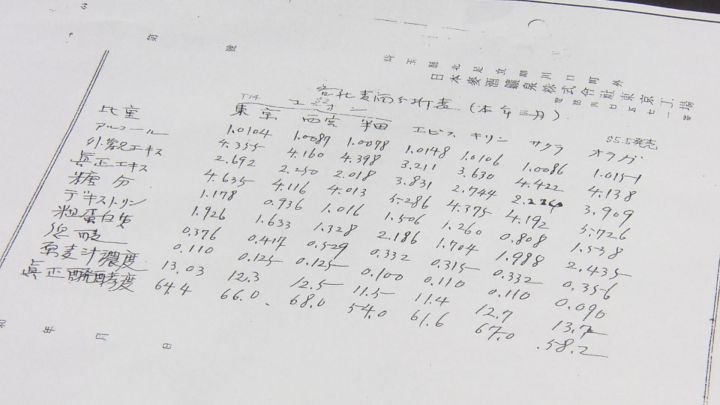 第 號
埼玉縣北足立郡川口町
日本麥酒鑛泉株式會社東京工場
各社麦酒分析表 (本年三月)
ユニオン S5.5発売
東京 西宮 半田 エビス キリン サクラ オラガ
比重 1.0104 1.0089 1.0098 1.0148 1.0106 1.0086 1.0151
アルコール 4.355 4.160 4.398 3.211 3.630 4.422 4.138
外観エキス 2.692 2.250 2.018 3.831 2.744 3.909
眞正エキス 4.635 4.116 4.013 5.286 4.375 4.192 5.726
糖分 1.178 0.936 1.016 1.506 1.260 0.808 1.538
デキストリン 1.926 1.633 1.328 2.186 1.704 1.988 2.435
粗蛋白質 0.376 0.417 0.529 0.332 0.315 0.332 0.356
総酸 0.110 0.125 0.125 0.100 0.110 0.110 0.090
原麦汁濃度 13.03 12.3 12.5 11.5 11.4 12.7 13.7
眞正醗酵度 64.4 66.0 68.0 54.0 61.6 67.0 58.2
年 月 日